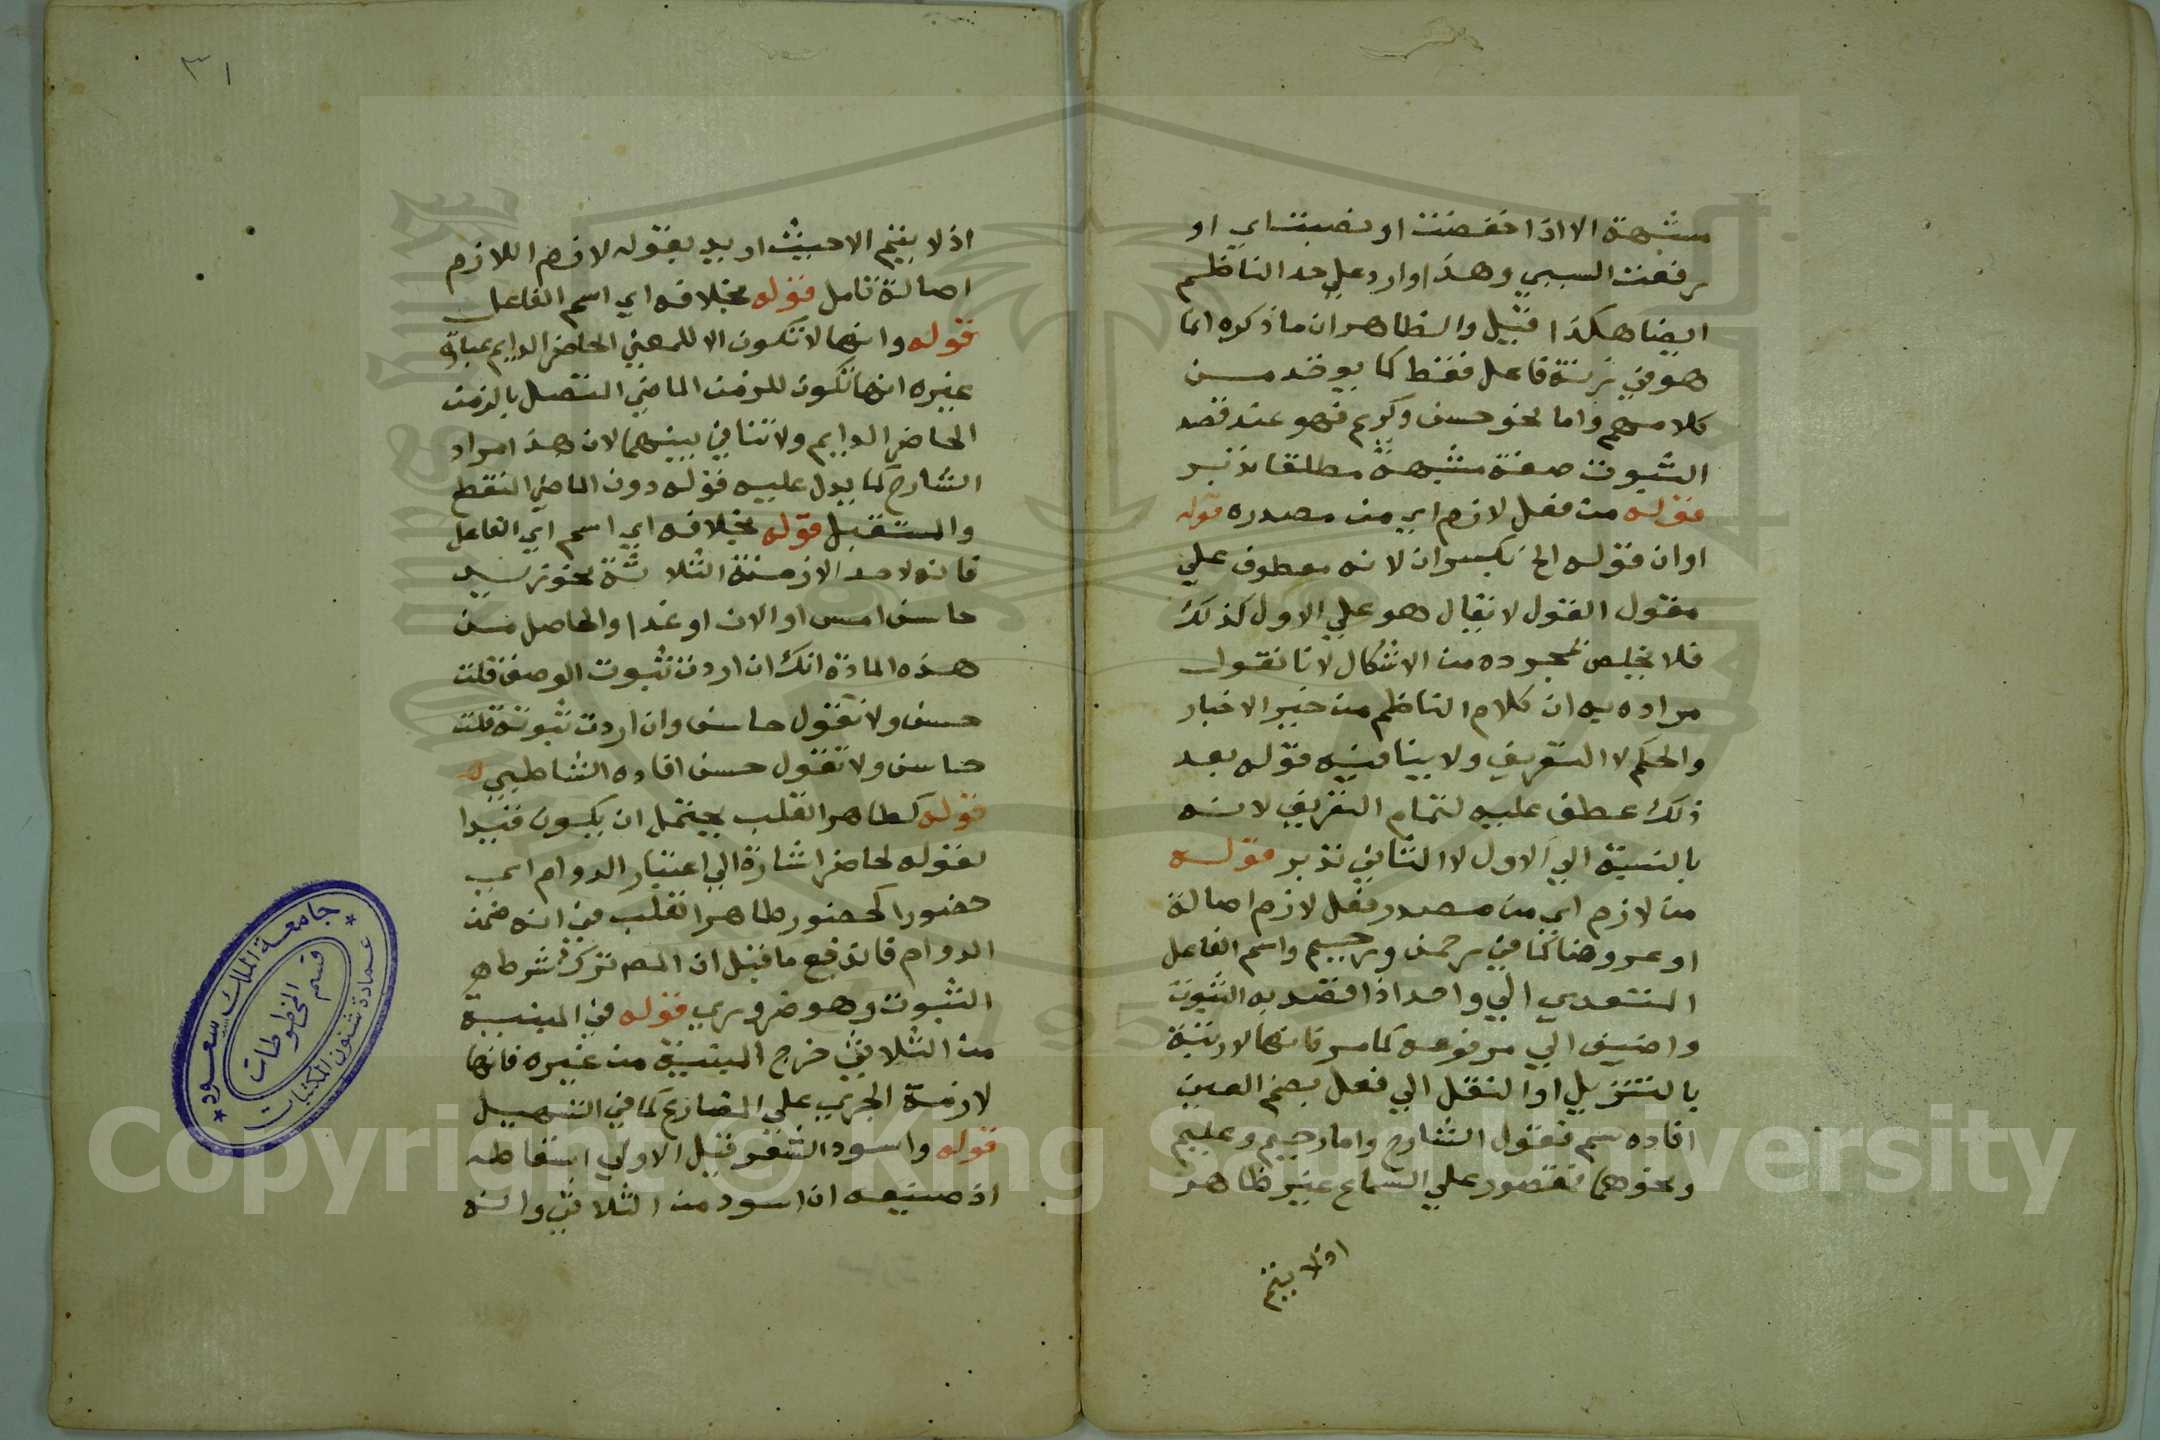 مشبهة الا اذا خفضت او نصبت اي او
رفعت السببي وهذا وارد علي حد الناظم
ايضا هكذا قيل والظاهر ان ما ذكره انما
هو في زنة فاعل فقط كما يوخذ مــن
كلامهم واما نحو حسن وكريم فهو عند قصد
الثبوت صفة مشبهة مطلقا تدبر
قوله من فعل لازم اي من مصدره قوله
او ان قوله الخ بكسر ان لانه معطوف علي
مقول القول لا يقال هو علي الاول كذلك
فلا يخلص بمجرده من الاشكال لانا نقول
مراده به ان كلام الناظم من خبر الاخبار
والحكم لا التعريف ولا ينافيه قوله بعد
ذلك عطف عليه لتمام التعريف لانــه
بالنسبة الي الاول لا الثاني تدبر قولــه
من لازم اي من مصدر فعل لازم اصالة
او عروضا كما في رحمن ورحيم واسم الفاعل
المتعدي الي واحد اذا قصد به الثبوت
واضيف الي مرفوعه كما مر فانهما لازمة
بالتنزيل او النقل الي فعل بضم العين
افاده سم فقول الشارح واما رحيم وعليم
ونحوهما فقصور علي السماع غير ظاهر
اذ لا يتم
٣١
اذ لا يتم الا حيث اريد بقوله لازم اللازم
اصالة تامل قوله بخلافه اي اسم الفاعل
قوله وانها لا تكون الا للمعني الحاضر الدايم عبارة
غيره انها تكون للزمن الماضي المتصل بالزمن
الحاضر الدايم ولا تنافي بينهما لان هذا مراد
الشارح كما يدل عليه قوله دون الماضي المنقطع
والمستقبل قوله بخلافه اي اسم اي الفاعل
فانه لاحد الازمنة الثلاثة نحو زيــد
حاسن امس او الان او غدا والحاصل مــن
هذه المادة انك ان اردت ثبوت الوصف قلت
حسن ولا تقول حاسن وان اردت ثبوته قلت
حاسن ولا تقول حسن افاده الشاطبي
قوله كطاهر القلب يحتمل ان يكون قيدا
لقوله لحاضر اشارة الي اعتبار الدوام اي
حضورا كحضور طاهر القلب في انه ضمن
الدوام فاندفع ما قيل ان المص ترك شرط
الثبوت وهو ضروري قوله في المبنيــة
من الثلاثي خرج المبنية من غيره فانها
لازمة الجري علي المضارع كما في التسهيل
قوله واسود الشعر قيل الاولي اسقاطه
اذ صنيعه ان اسود من الثلاثي وانه
جامعة الملك سعود
قسم المخطوطات
عمادة شئون المكتبات
1957
Copyright © King Saud University